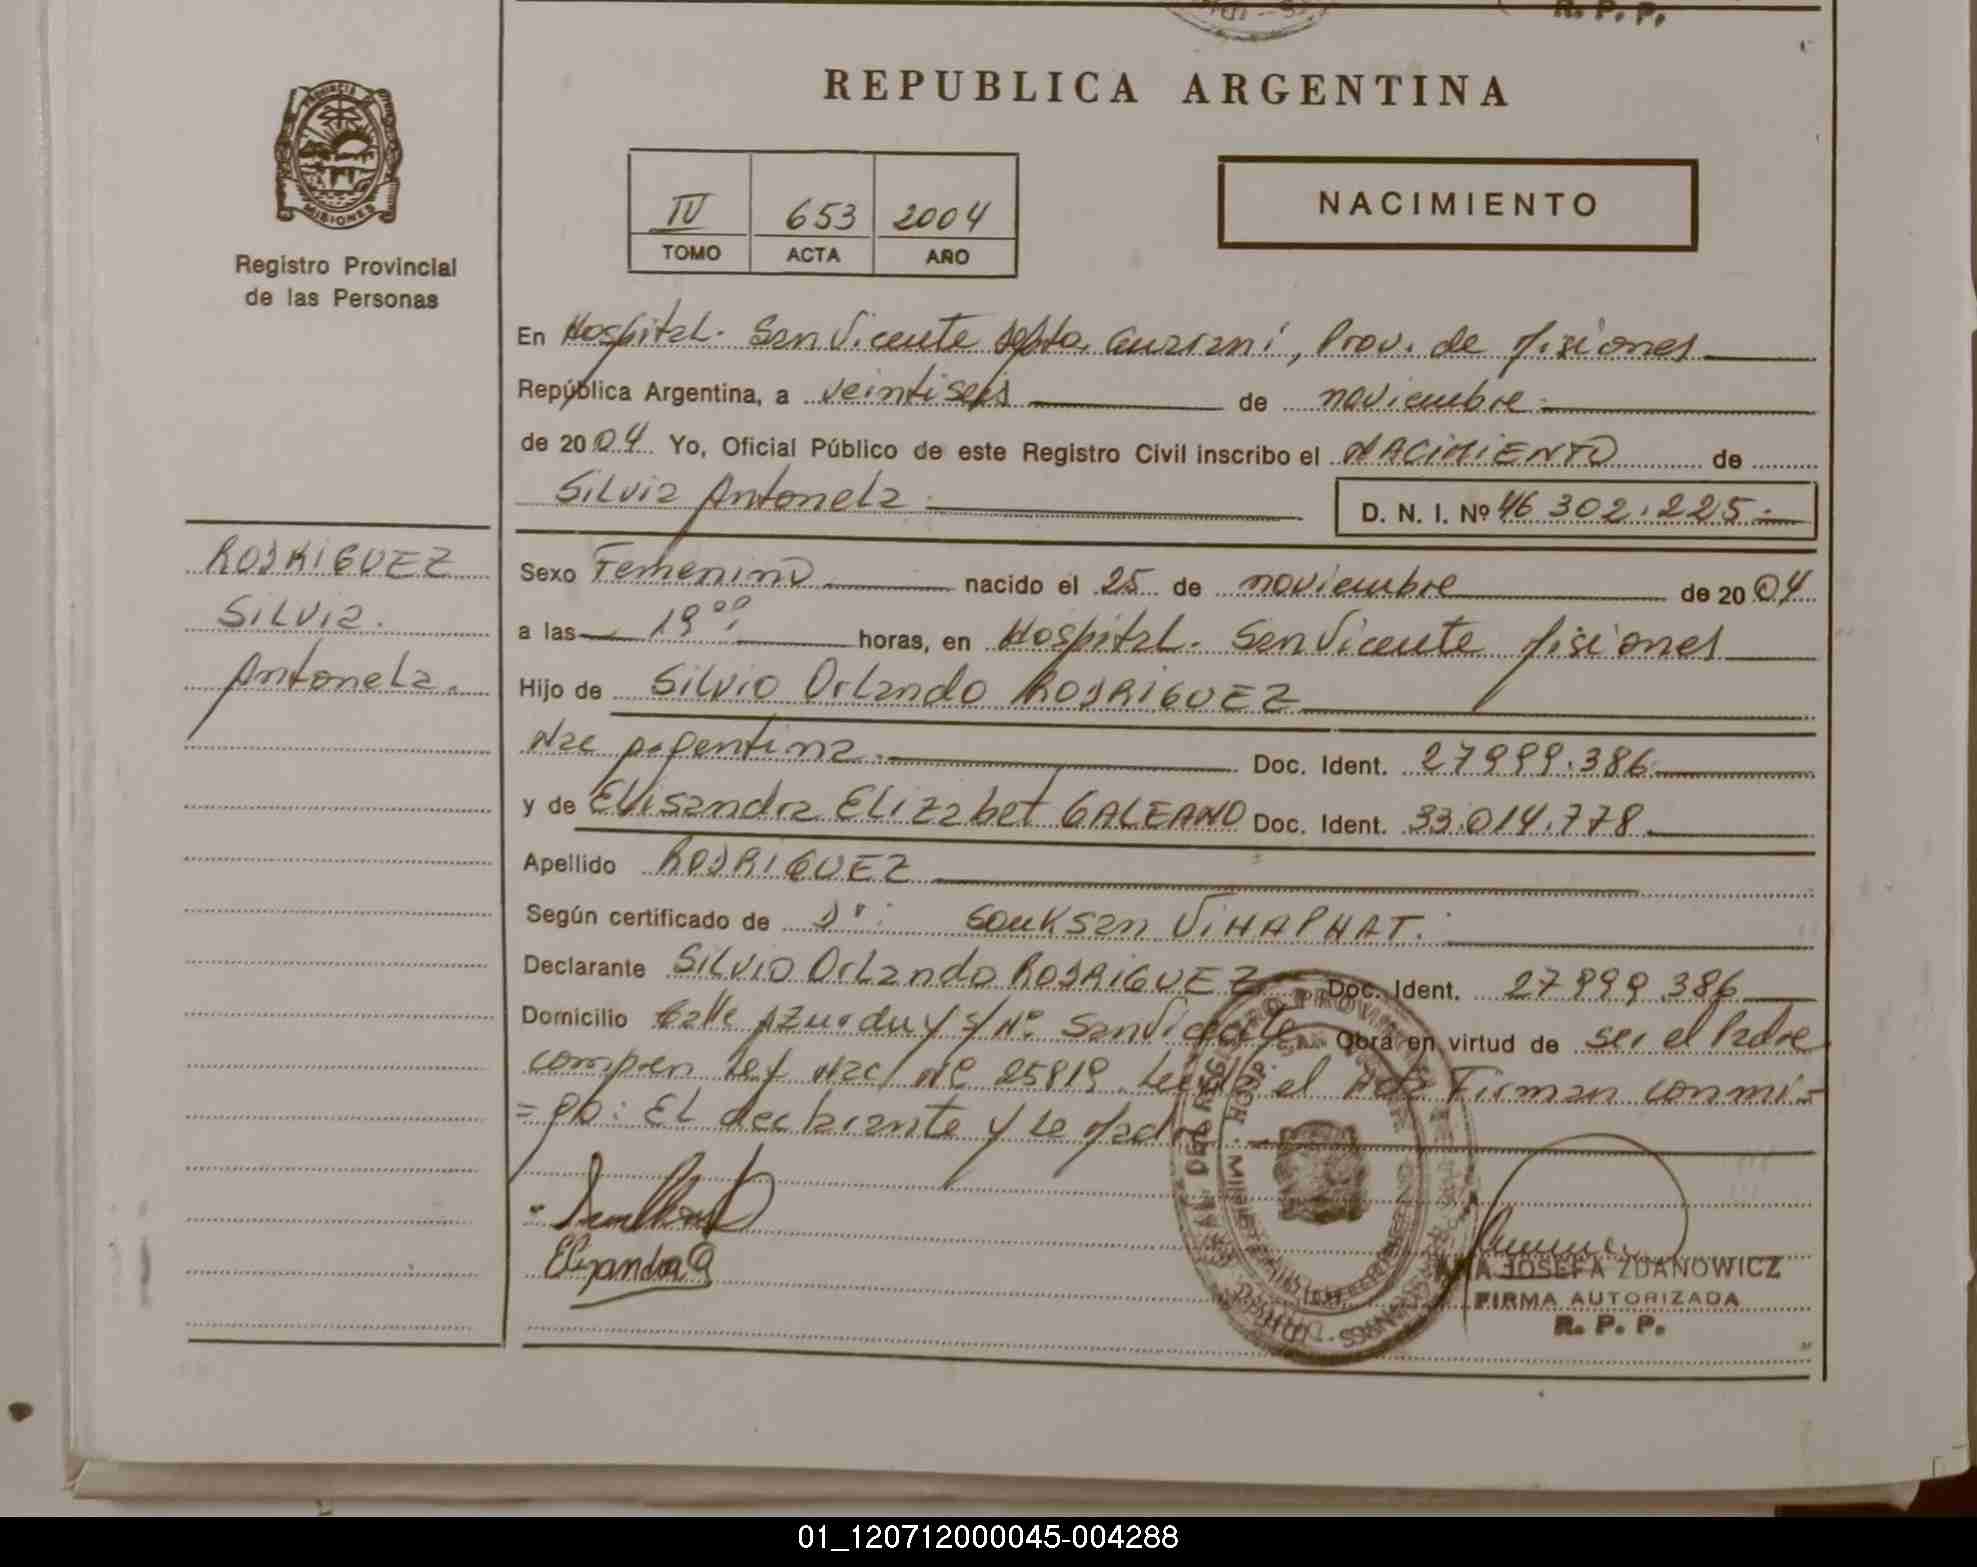 R. P. P.
REPUBLICA ARGENTINA
PROVINCIA DE
MISIONES
Registro Provincial
de las Personas
IV 653 2004
TOMO ACTA AÑO
NACIMIENTO
En Hospital. San Vicente Dpto. Guarani, Prov. de Misiones
República Argentina, a veintiseis de noviembre
de 2004 Yo, Oficial Público de este Registro Civil inscribo el NACIMIENTO de
Silvia Antonela
D. N. I. Nº 46 302.225.-
RODRIGUEZ
Silvia.
Antonela.
Sexo Femenino nacido el 25 de noviembre de 2004
a las 19⁰⁰ horas, en Hospital. San Vicente Misiones
Hijo de Silvio Orlando RODRIGUEZ
Nac Argentina. Doc. Ident. 27999.386
y de Elisandra Elizabet GALEANO Doc. Ident. 33.014.778
Apellido RODRIGUEZ
Según certificado de Dr: Souksan VIHAPHAT.
Declarante Silvio Orlando RODRIGUEZ Doc. Ident. 27999.386
Domicilio Calle Azurduy s/Nº San Vicente Obra en virtud de ser el Padre
compren Ley Nac/ Nº 25819. Leída el Acta Firman conmi-
=go: El declarante y la Madre
Elisandra G
ANA JOSEFA ZDANOWICZ
FIRMA AUTORIZADA
R. P. P.
01_120712000045-004288